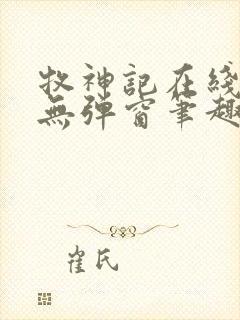 牧神記在綫
無彈窗筆趣
崔氏